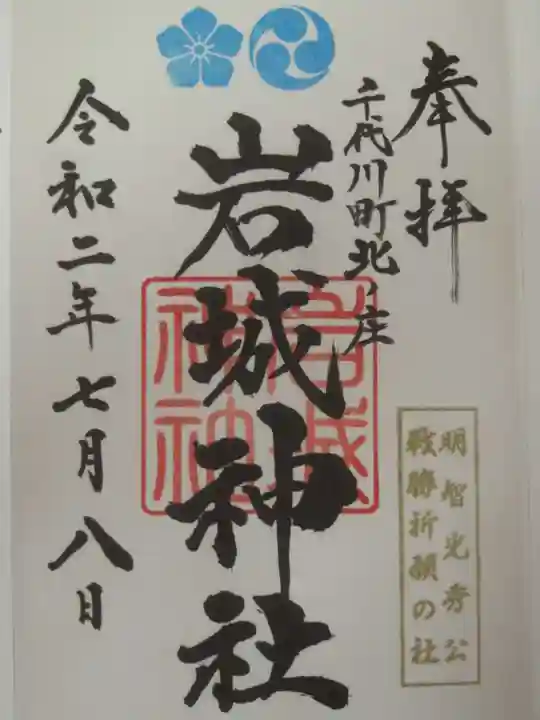 奉拝
明智光秀公
戦勝祈願の社
千代川町北ノ庄
岩城神社
岩城
神社
令和二年七月八日